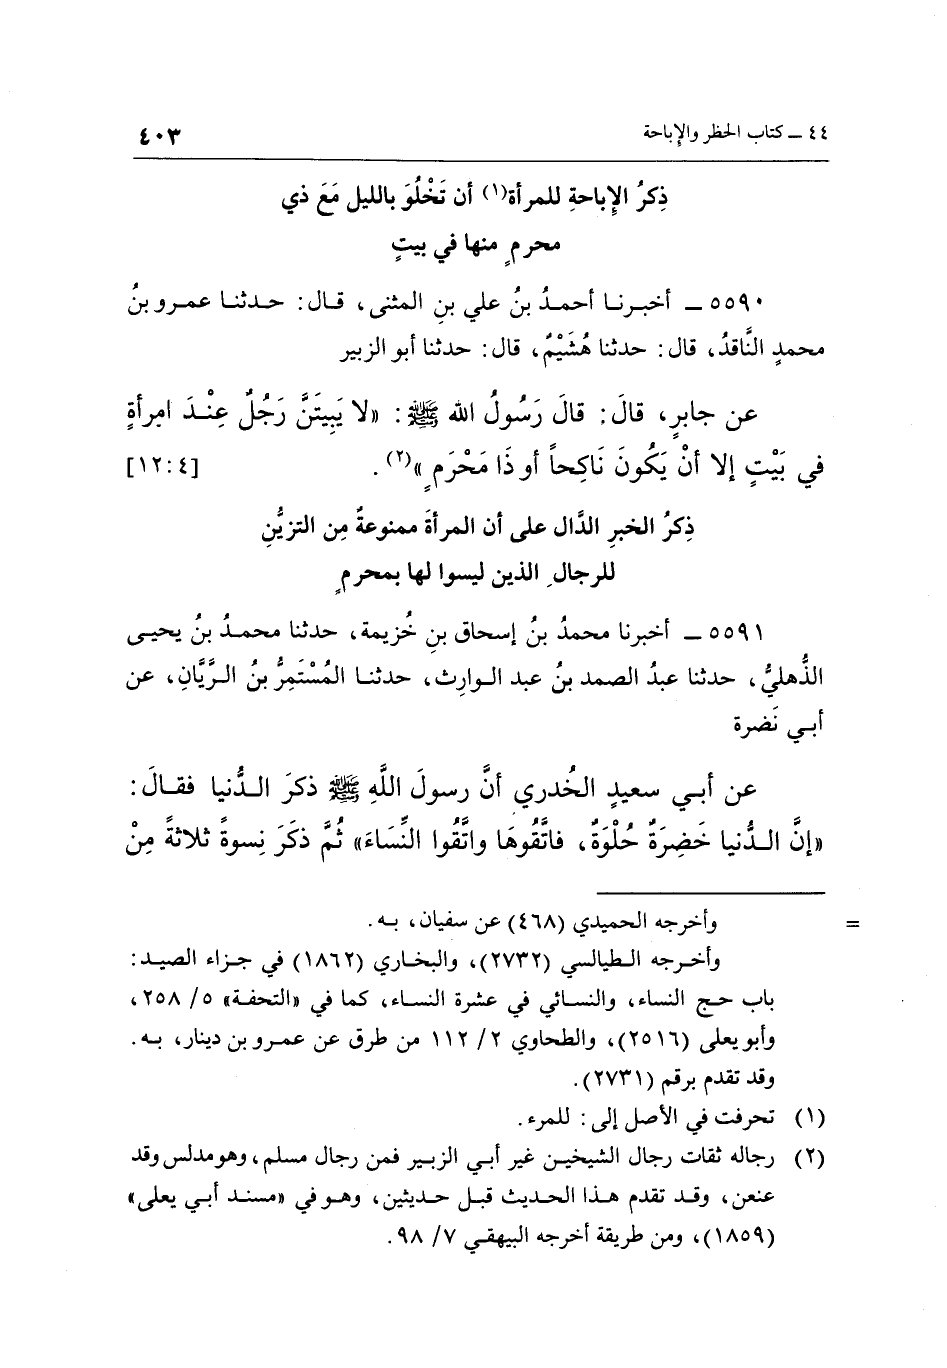 ٤٤ ــ كتاب الحظر والإباحة ٤٠٣
ذِكرُ الإباحةِ للمرأة(١) أن تَخْلُوَ بالليل مَعَ ذي
محرمٍ منها في بيتٍ
٥٥٩٠ ــ أخبرنا أحمدُ بنُ علي بنِ المثنى، قال: حدثنا عمرو بنُ
محمدٍ النَّاقدُ، قال: حدثنا هُشَيْمٌ، قال: حدثنا أبو الزبير
عن جابرٍ، قالَ: قالَ رَسُولُ الله ﷺ: «لا يَبِيتَنَّ رَجُلٌ عِنْدَ امرأةٍ
في بَيْتٍ إلا أنْ يَكُونَ نَاكِحاً أو ذَا مَحْرَمٍ»(٢). [٤: ١٢]
ذِكرُ الخبرِ الدَّال على أن المرأةَ ممنوعةٌ مِن التزيُّنِ
للرجالِ الذين ليسوا لها بمحرمٍ
٥٥٩١ ــ أخبرنا محمدُ بنُ إسحاق بنِ خُزيمة، حدثنا محمدُ بنُ يحيى
الذُّهليُّ، حدثنا عبدُ الصمد بنُ عبد الوارِث، حدثنا المُسْتَمِرُّ بنُ الرَّيَّانِ، عن
أبي نَضرة
عن أبي سعيدٍ الخُدري أنَّ رسولَ اللَّهِ ﷺ ذكرَ الدُّنيا فقالَ:
«إنَّ الدُّنيا خَضِرَةٌ حُلْوَةٌ، فاتَّقُوهَا واتَّقُوا النِّسَاءَ» ثُمَّ ذكَرَ نِسوةً ثلاثةً مِنْ
= وأخرجه الحميدي (٤٦٨) عن سفيان، به.
وأخرجه الطيالسي (٢٧٣٢)، والبخاري (١٨٦٢) في جزاء الصيد:
باب حج النساء، والنسائي في عشرة النساء، كما في «التحفة» ٥/ ٢٥٨،
وأبو يعلى (٢٥١٦)، والطحاوي ٢/ ١١٢ من طرق عن عمرو بن دينار، به.
وقد تقدم برقم (٢٧٣١).
(١) تحرفت في الأصل إلى: للمرء.
(٢) رجاله ثقات رجال الشيخين غير أبي الزبير فمن رجال مسلم، وهو مدلس وقد
عنعن، وقد تقدم هذا الحديث قبل حديثين، وهو في «مسند أبي يعلى»
(١٨٥٩)، ومن طريقة أخرجه البيهقي ٧/ ٩٨.